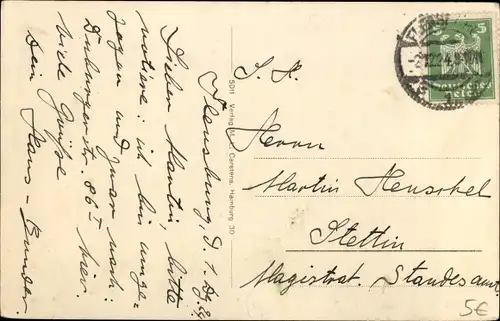 Flensburg, d. 1. Dez. 24
Lieber Martin, bitte
notiere: ich bin umge-
zogen und zwar nach:
Duburgerstr. 86 I
viele Grüsse hier.
Dein Hans-Gunder
5011 Verlag M. Carstens, Hamburg 30
S. H.
Herrn
Martin Henschel
Stettin
Magistrat. Standesamt
5
Deutsches
Reich
5€